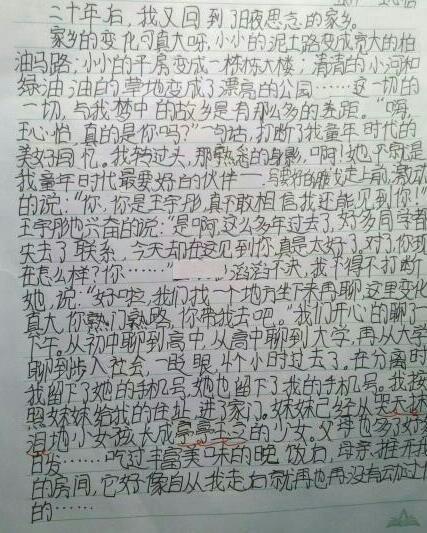 二十年后，我又回到了日夜思念的家乡。
家乡的变化可真大呀，小小的泥土路变成宽大的柏
油马路；小小的平房变成一栋栋大楼；清清的小河和
绿油油的草地变成了漂亮的公园……这一切的
一切，与我梦中的故乡是有那么多的差距。“啊，
王心怡，真的是你吗？”一句话，打断了我童年时代的
美好回忆。我转过头，那熟悉的身影，啊！她不就是
我童年时代最要好的伙伴——我走上前，激动
的说：“你，你是王宇彤，真不敢相信我还能见到你！”
王宇彤也兴奋的说：“是啊，这么多年过去了，好多同学都
失去了联系，今天却在这见到你真是太好了，对了，你现
在怎么样？你……”滔滔不决，我不得不打断
她，说：“好啦，我们找一个地方坐下来再聊，这里变化
真大，你熟门熟路，你带我去吧。”我们开心的聊了一
下午。从初中聊到高中，从高中聊到大学，再从大学
聊到步入社会，一眨眼，4个小时过去了。在分离时
我留下了她的手机号，她也留下了我的手机号。我按
照妹妹给我的住址，进了家门。妹妹已经从哭天抹
泪地小女孩长成亭亭玉立的少女。父母也多了好多
白发……吃过丰富美味的晚饭后，母亲推开我
的房间，它好像自从我走右就再也再没有动过
的……